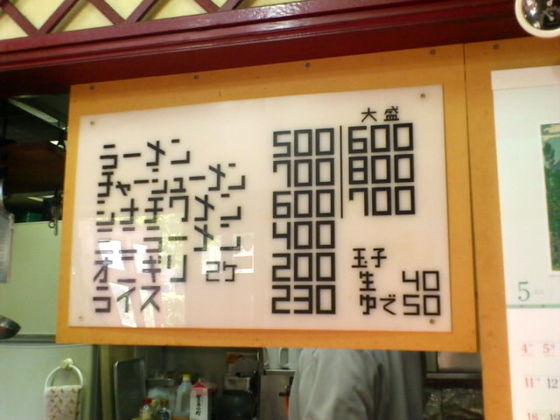 大盛
ラーメン 500 600
チャーシューメン 700 800
シナチクメン 600 700
ミニラーメン 400
オニギリ 2ケ 200
ライス 230
玉子
生 40
ゆで 50
5
4 5
11 12
18